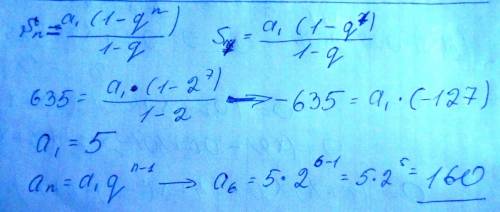 Sn = a₁(1-qⁿ)/1-q S₇ = a₁(1-q⁷)/1-q
635 = a₁•(1-2⁷)/1-2 → -635 = a₁•(-127)
a₁ = 5
aₙ = a₁qⁿ⁻¹ → a₆ = 5•2⁶⁻¹ = 5•2⁵ = 160